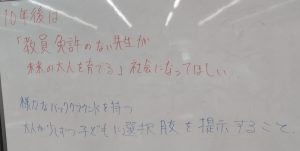 10年後は
「教員免許のない先生が
未来の大人を育てる」社会になってほしい
様々なバックグラウンドを持つ
大人が子どもに選択肢を提示すること。